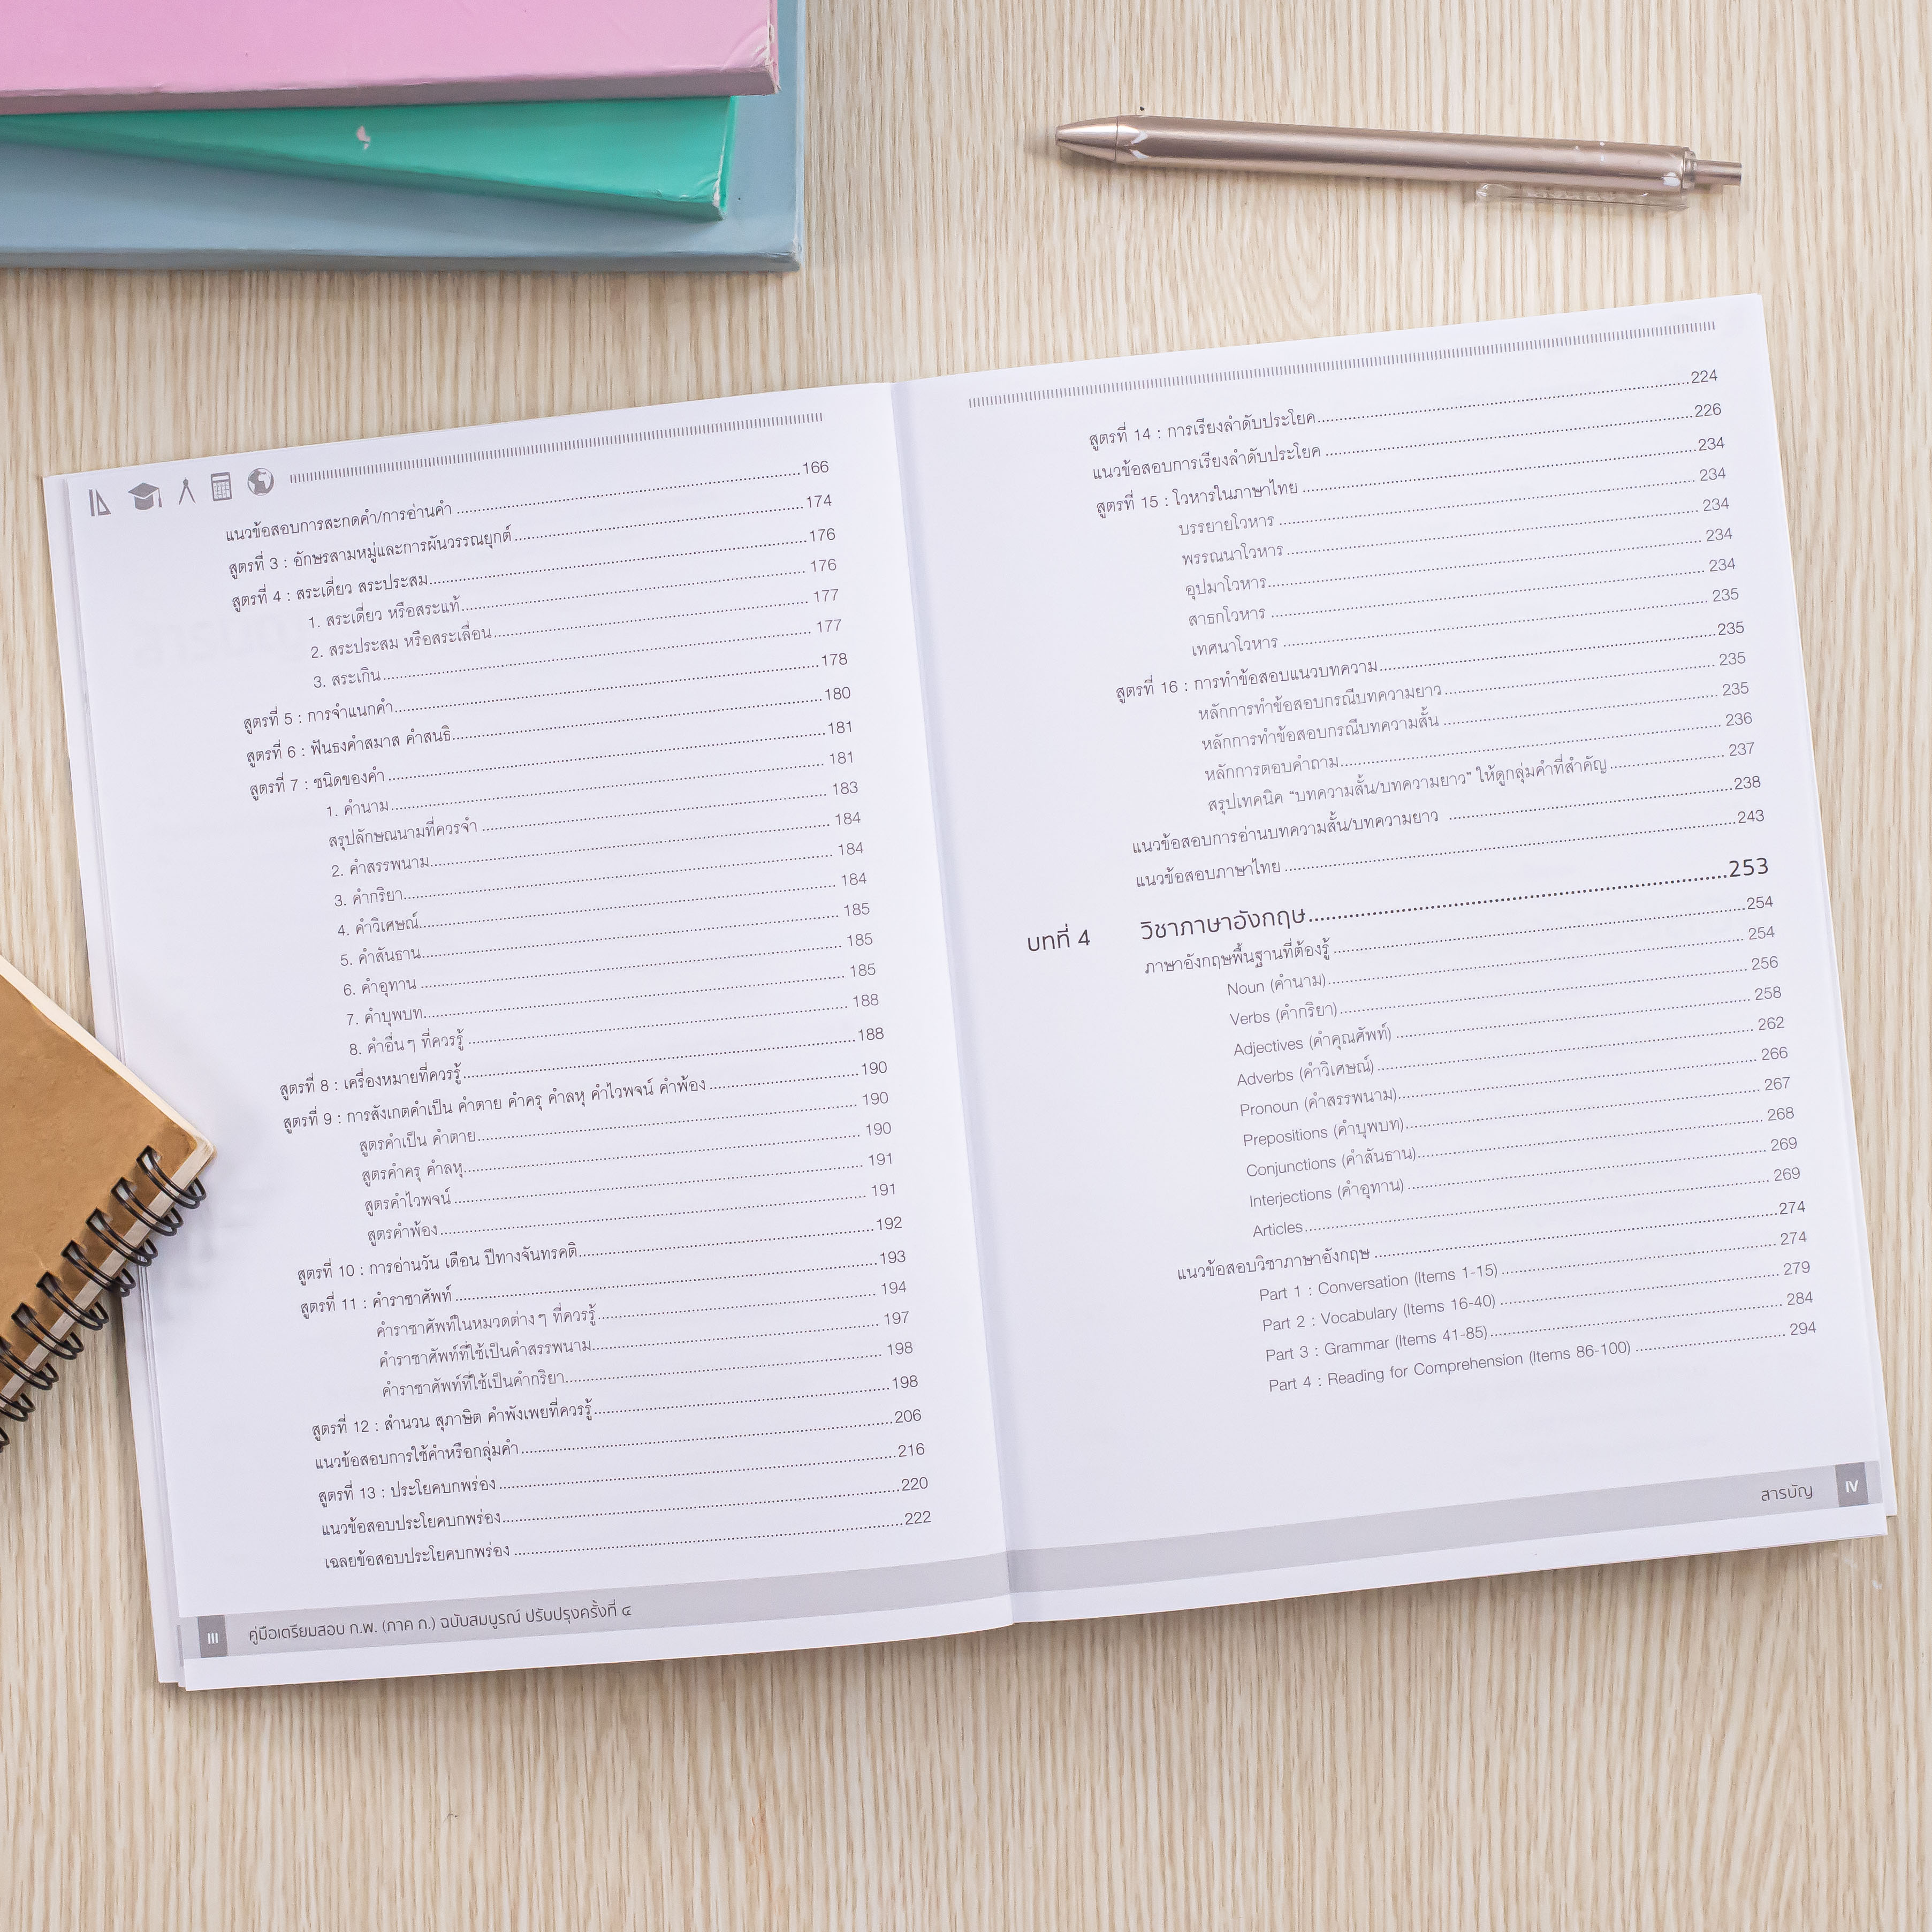 แนวข้อสอบการสะกดคำ/การอ่านคำ ........ 166
สูตรที่ 3 : อักษรสามหมู่และการผันวรรณยุกต์ ........ 174
สูตรที่ 4 : สระเดี่ยว สระประสม ........ 176
1. สระเดี่ยว หรือสระแท้ ........ 176
2. สระประสม หรือสระเลื่อน ........ 177
3. สระเกิน ........ 177
สูตรที่ 5 : การจำแนกคำ ........ 178
สูตรที่ 6 : ฟันธงคำสมาส คำสนธิ ........ 180
สูตรที่ 7 : ชนิดของคำ ........ 181
1. คำนาม ........ 181
สรุปลักษณนามที่ควรจำ ........ 183
2. คำสรรพนาม ........ 184
3. คำกริยา ........ 184
4. คำวิเศษณ์ ........ 184
5. คำสันธาน ........ 185
6. คำอุทาน ........ 185
7. คำบุพบท ........ 185
8. คำอื่นๆ ที่ควรรู้ ........ 188
สูตรที่ 8 : เครื่องหมายที่ควรรู้ ........ 188
สูตรที่ 9 : การสังเกตคำเป็น คำตาย คำครุ คำลหุ คำไวพจน์ คำพ้อง ........ 190
สูตรคำเป็น คำตาย ........ 190
สูตรคำครุ คำลหุ ........ 190
สูตรคำไวพจน์ ........ 191
สูตรคำพ้อง ........ 191
สูตรที่ 10 : การอ่านวัน เดือน ปีทางจันทรคติ ........ 192
สูตรที่ 11 : คำราชาศัพท์ ........ 193
คำราชาศัพท์ในหมวดต่างๆ ที่ควรรู้ ........ 194
คำราชาศัพท์ที่ใช้เป็นคำสรรพนาม ........ 197
คำราชาศัพท์ที่ใช้เป็นคำกริยา ........ 198
สูตรที่ 12 : สำนวน สุภาษิต คำพังเพยที่ควรรู้ ........ 198
แนวข้อสอบการใช้คำหรือกลุ่มคำ ........ 206
สูตรที่ 13 : ประโยคบกพร่อง ........ 216
แนวข้อสอบประโยคบกพร่อง ........ 220
เฉลยข้อสอบประโยคบกพร่อง ........ 222
III คู่มือเตรียมสอบ ก.พ. (ภาค ก.) ฉบับสมบูรณ์ ปรับปรุงครั้งที่ ๔
สูตรที่ 14 : การเรียงลำดับประโยค ........ 224
แนวข้อสอบการเรียงลำดับประโยค ........ 226
สูตรที่ 15 : โวหารในภาษาไทย ........ 234
บรรยายโวหาร ........ 234
พรรณนาโวหาร ........ 234
อุปมาโวหาร ........ 234
สาธกโวหาร ........ 234
เทศนาโวหาร ........ 235
สูตรที่ 16 : การทำข้อสอบแนวบทความ ........ 235
หลักการทำข้อสอบกรณีบทความยาว ........ 235
หลักการทำข้อสอบกรณีบทความสั้น ........ 235
หลักการตอบคำถาม ........ 236
สรุปเทคนิค “บทความสั้น/บทความยาว” ให้ดูกลุ่มคำที่สำคัญ ........ 237
แนวข้อสอบการอ่านบทความสั้น/บทความยาว ........ 238
แนวข้อสอบภาษาไทย ........ 243
บทที่ 4 วิชาภาษาอังกฤษ ........ 253
ภาษาอังกฤษพื้นฐานที่ต้องรู้ ........ 254
Noun (คำนาม) ........ 254
Verbs (คำกริยา) ........ 256
Adjectives (คำคุณศัพท์) ........ 258
Adverbs (คำวิเศษณ์) ........ 262
Pronoun (คำสรรพนาม) ........ 266
Prepositions (คำบุพบท) ........ 267
Conjunctions (คำสันธาน) ........ 268
Interjections (คำอุทาน) ........ 269
Articles ........ 269
แนวข้อสอบวิชาภาษาอังกฤษ ........ 274
Part 1 : Conversation (Items 1-15) ........ 274
Part 2 : Vocabulary (Items 16-40) ........ 279
Part 3 : Grammar (Items 41-85) ........ 284
Part 4 : Reading for Comprehension (Items 86-100) ........ 294
สารบัญ IV